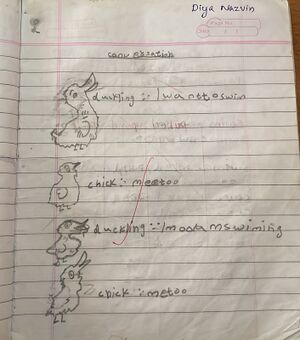 Diya Nazvin
Page No.
conversation
duckling :- I want to swim
chick :- metoo
duckling :- I modamswiming
chick :- metoo